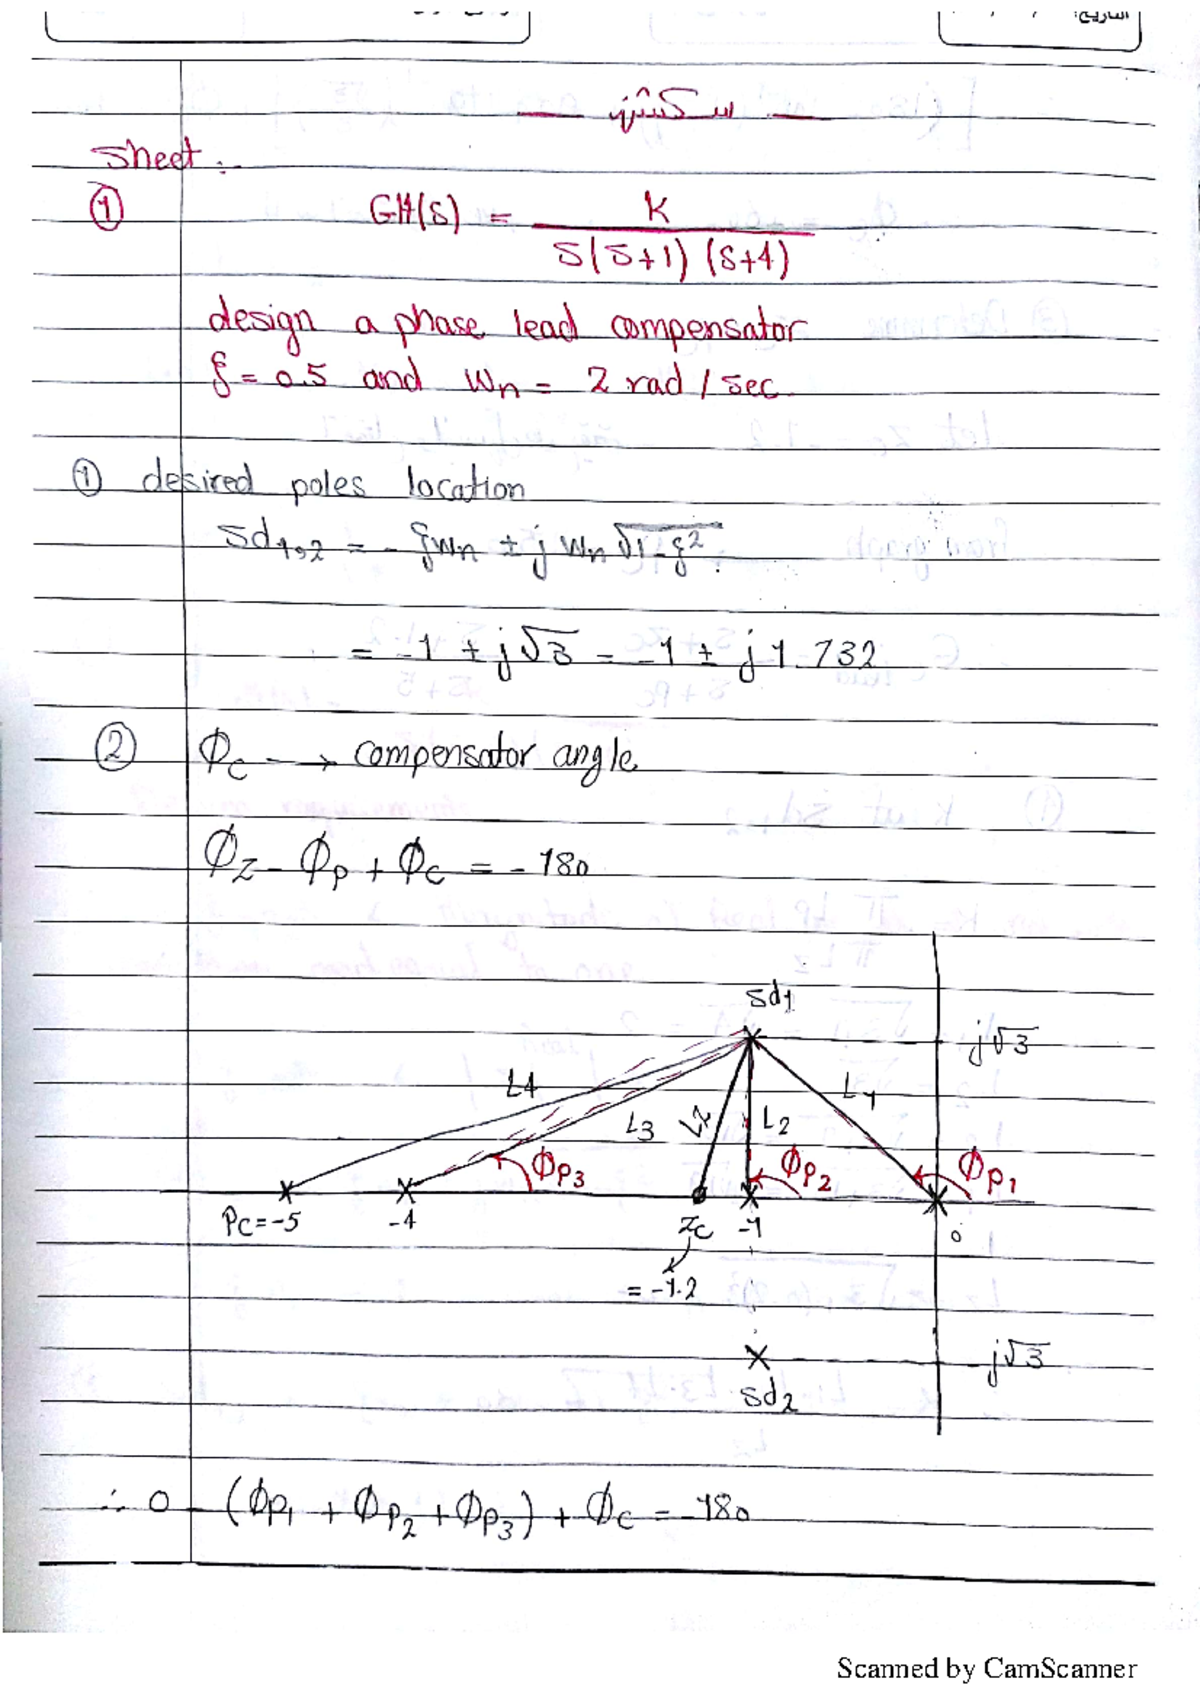 التاريخ: / /
سكشن
Sheet :-
① GH(S) = K / S(S+1) (S+4)
design a phase lead compensator
ξ = 0.5 and Wn = 2 rad / sec.
① desired poles location
Sd1,2 = - ξWn ± j Wn √1-ξ²
= -1 ± j√3 = -1 ± j 1.732
② Φc → compensator angle
Φz - Φp + Φc = - 180
Sd1
j√3
L4 L3 Lz L2 L1
Φp3 Φp2 Φp1
Pc = -5 -4 Zc -1 0
= -1.2
-j√3
Sd2
∴ 0 - (Φp1 + Φp2 + Φp3) + Φc = -180
Scanned by CamScanner